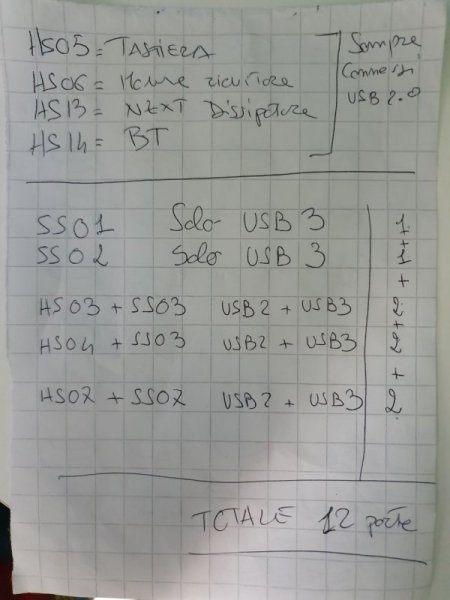 HS05 = TASTIERA
HS06 = Mouse ricevitore
HS13 = NZXT Dissipatore
HS14 = BT
Sempre
Connessi
USB 2.0
SS01 Solo USB 3 1
+
SS02 Solo USB 3 1
+
HS03 + SS03 USB2 + USB3 2
+
HS04 + SS03 USB2 + USB3 2
+
HS07 + SS07 USB2 + USB3 2
TOTALE 12 porte